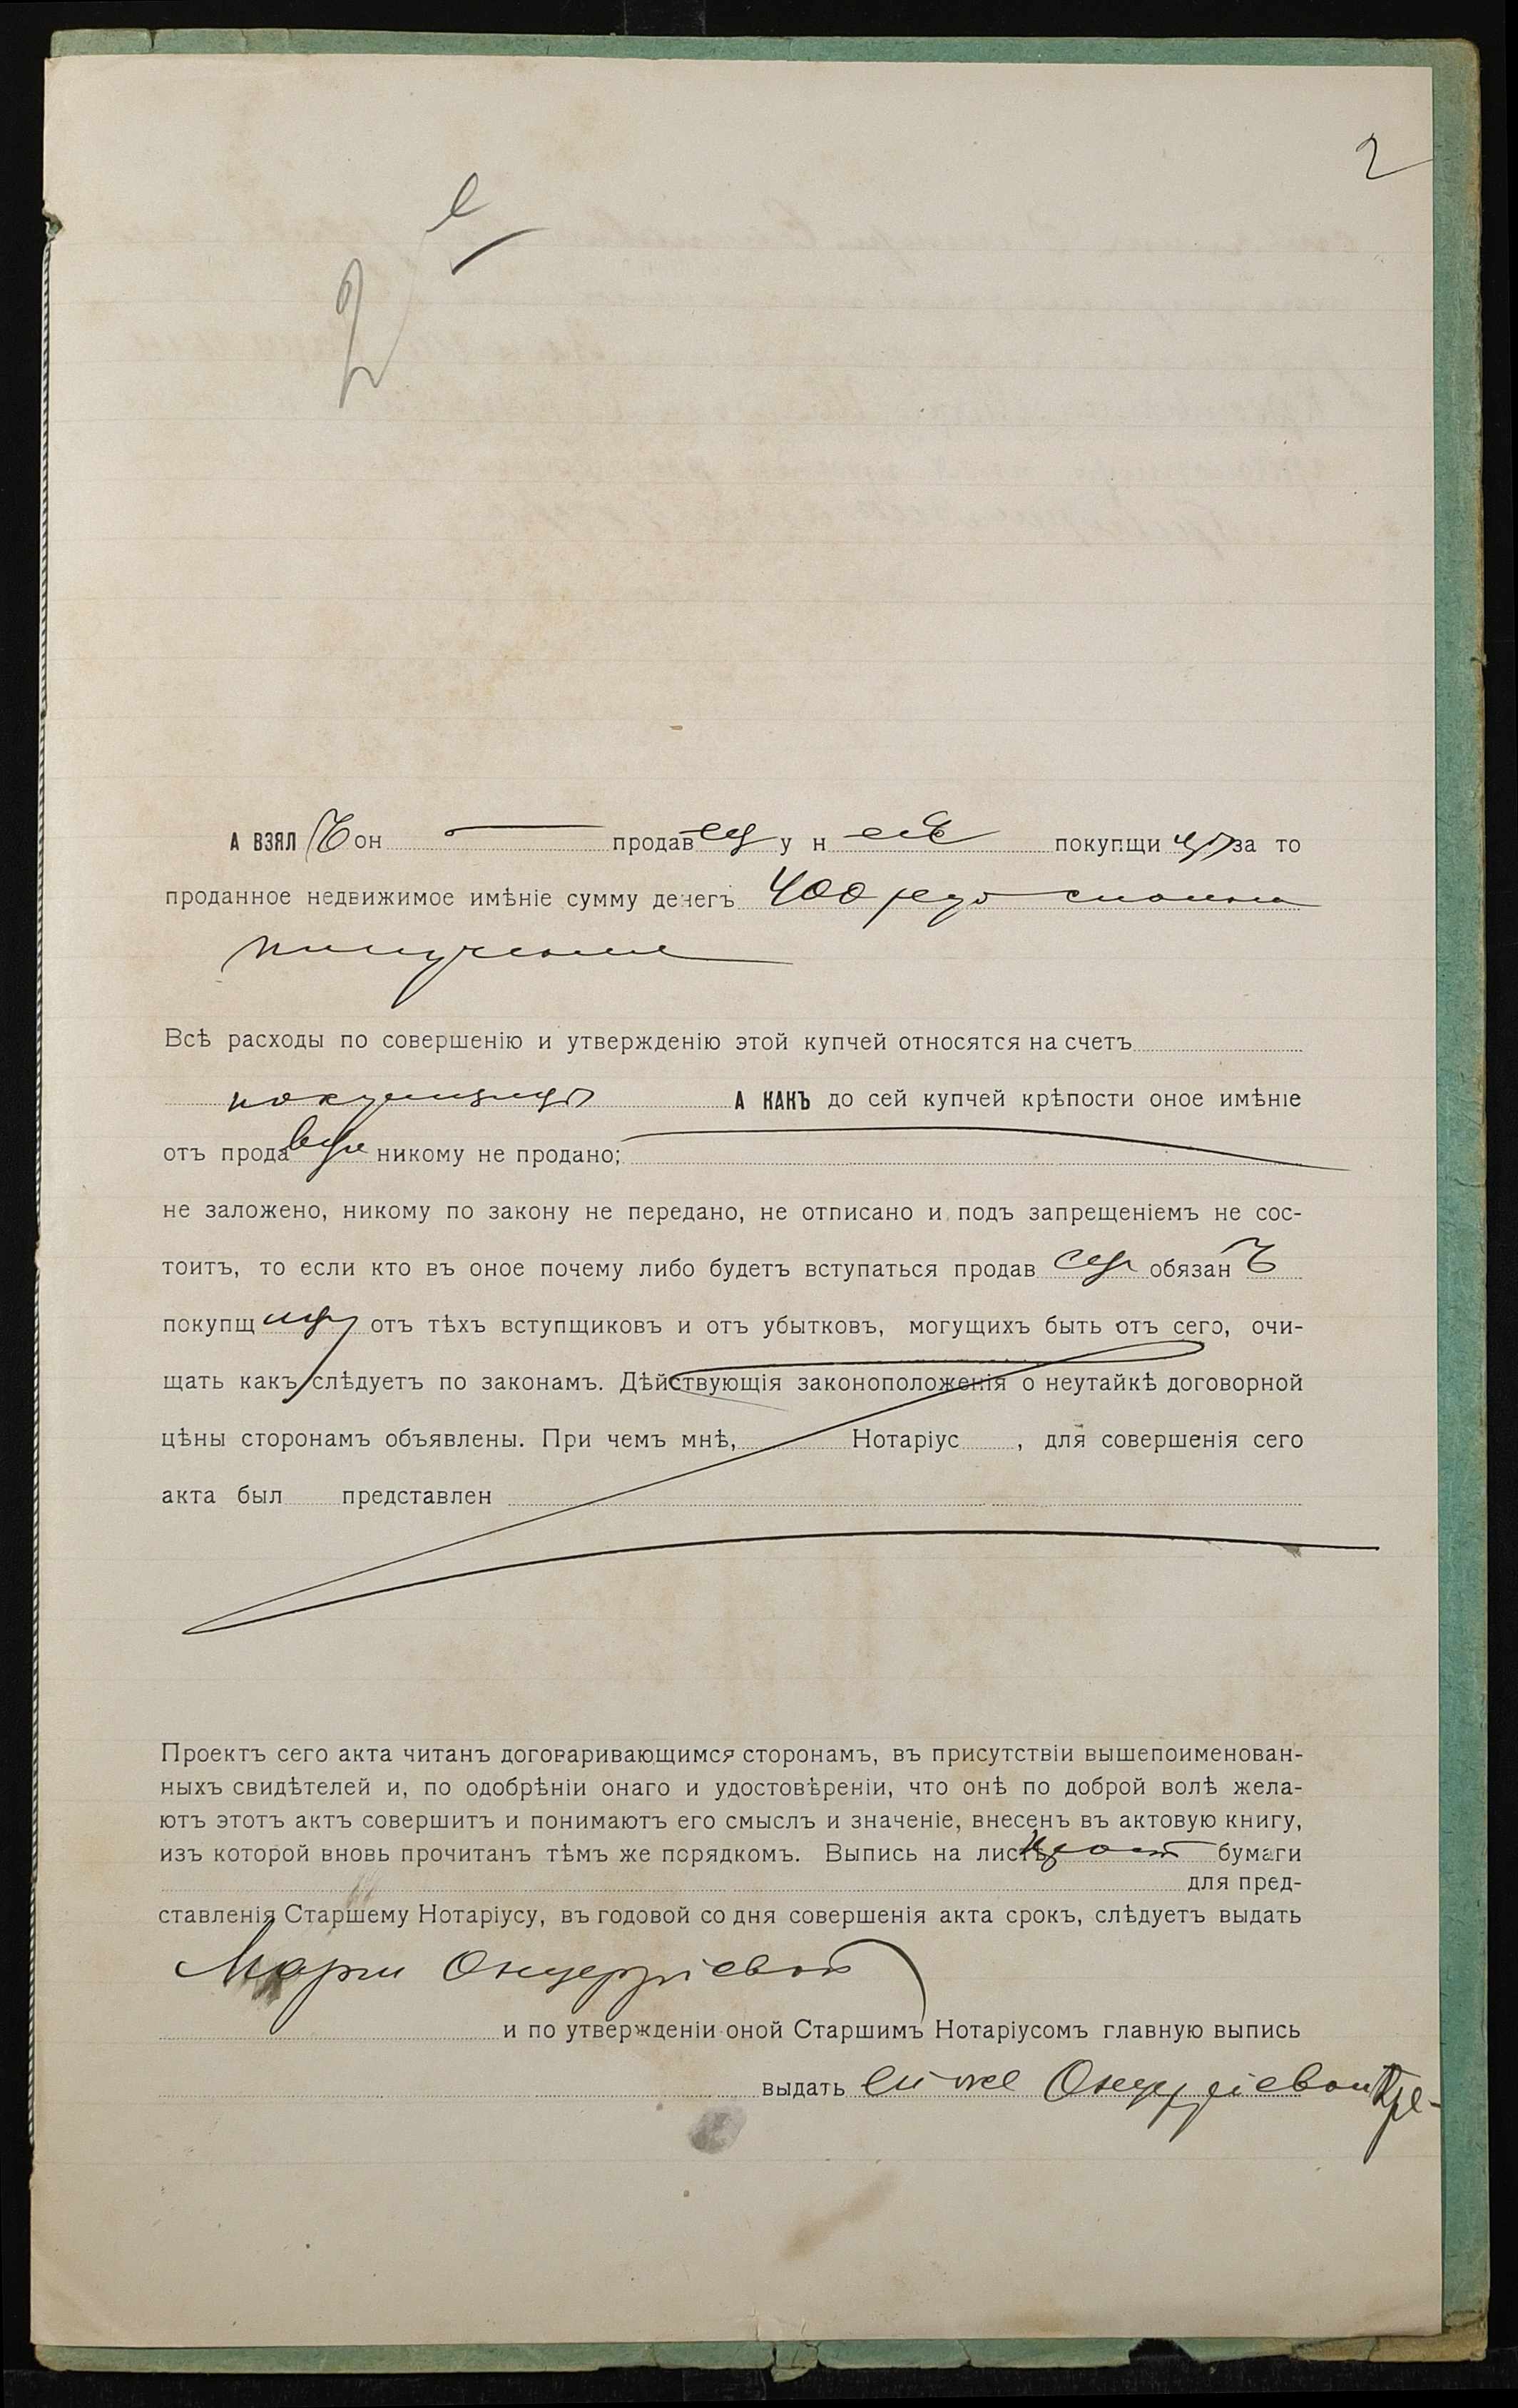 2
А ВЗЯЛЪ он продавец у н ея покупщицы за то
проданное недвижимое имѣніе сумму денегъ 400 руб сполна
полученные
Всѣ расходы по совершенію и утвержденію этой купчей относятся на счетъ
покупщицы А КАКЪ до сей купчей крѣпости оное имѣніе
отъ продавца никому не продано;
не заложено, никому по закону не передано, не отписано и подъ запрещеніемъ не сос-
тоитъ, то если кто въ оное почему либо будетъ вступаться продавец обязанЪ
покупщицу отъ тѣхъ вступщиковъ и отъ убытковъ, могущихъ быть отъ сего, очи-
щать какъ слѣдуетъ по законамъ. Дѣйствующія законоположенія о неутайкѣ договорной
цѣны сторонамъ объявлены. При чемъ мнѣ, Нотаріус , для совершенія сего
акта был представлен
Проектъ сего акта читанъ договаривающимся сторонамъ, въ присутствіи вышепоименован-
ныхъ свидѣтелей и, по одобрѣніи онаго и удостовѣреніи, что онѣ по доброй волѣ жела-
ютъ этотъ актъ совершитъ и понимаютъ его смыслъ и значеніе, внесенъ въ актовую книгу,
изъ которой вновь прочитанъ тѣмъ же порядкомъ. Выпись на листѣ бумаги
для пред-
ставленія Старшему Нотаріусу, въ годовой со дня совершенія акта срокъ, слѣдуетъ выдать
Маріи
и по утвержденіи оной Старшимъ Нотаріусомъ главную выпись
выдать ей же